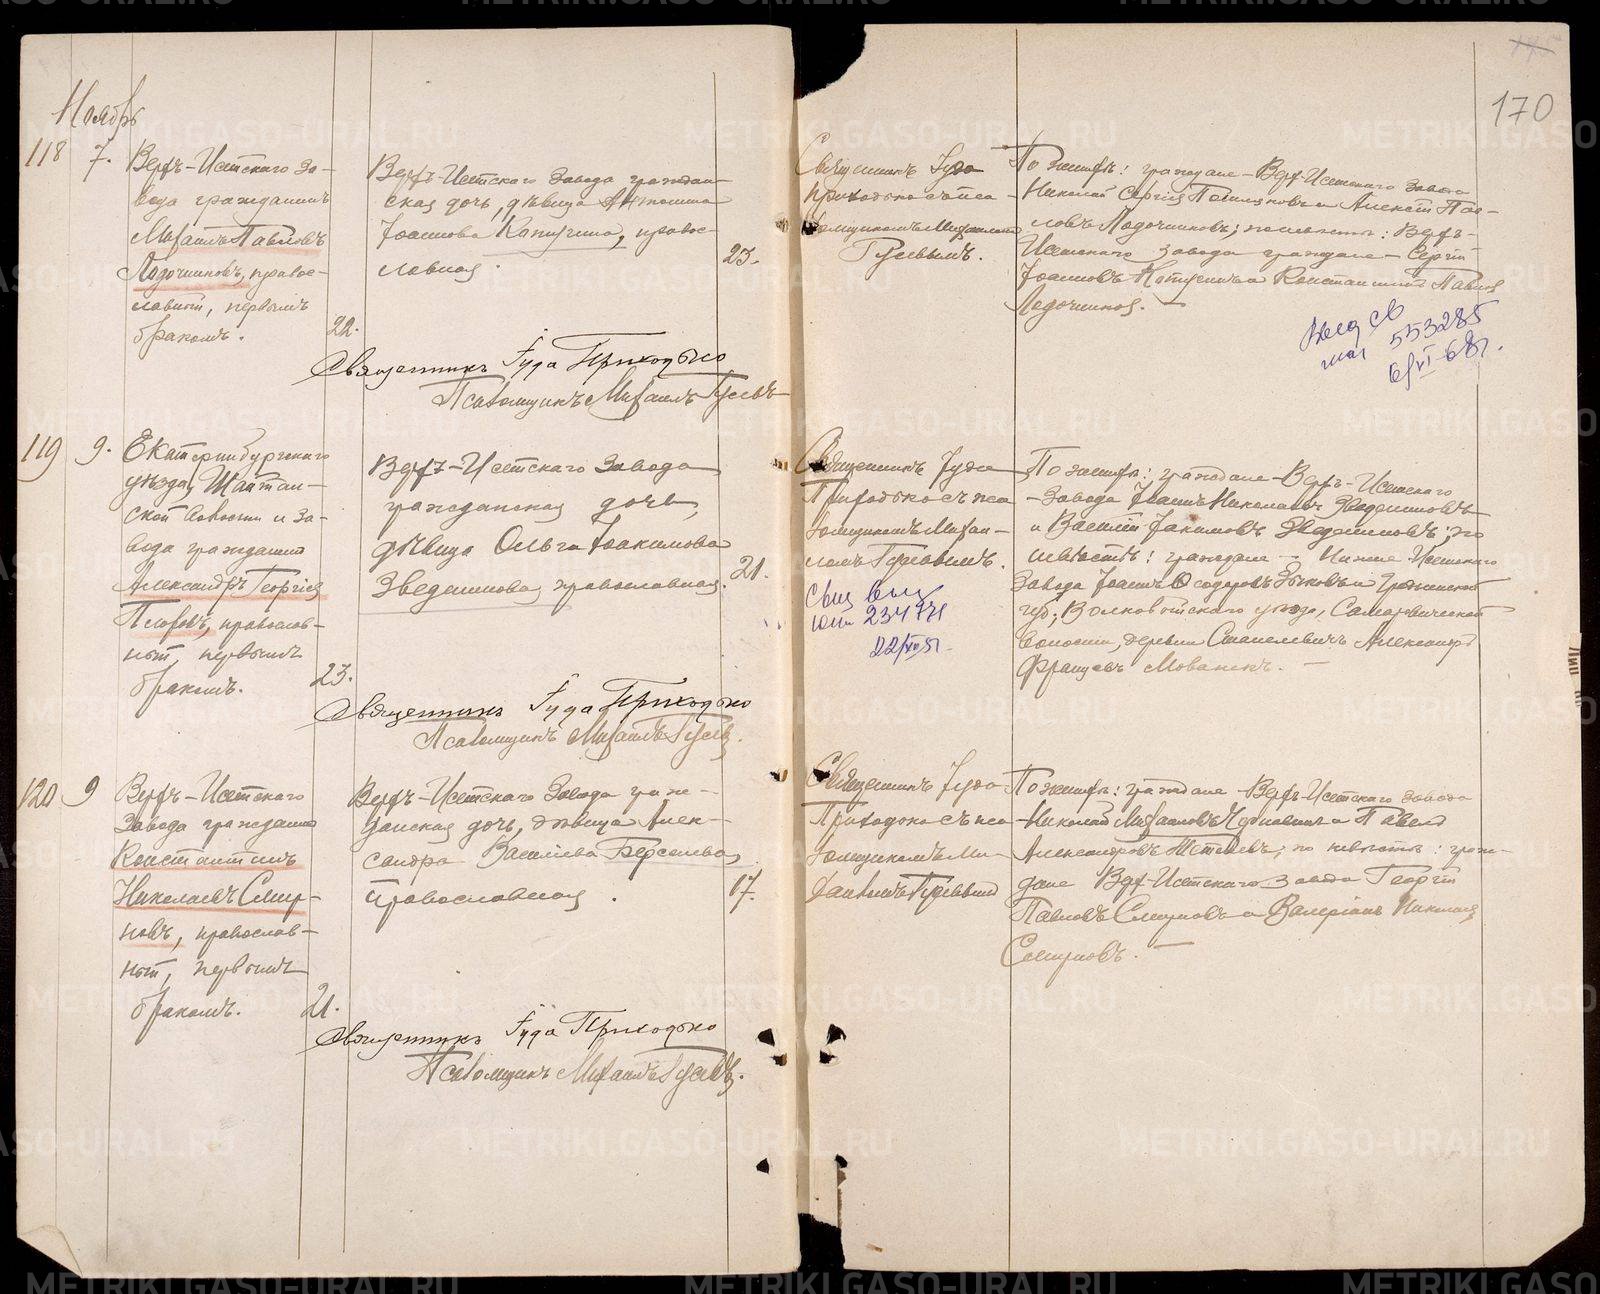 170
Ноябрь
118 7. Верхъ-Исетскаго за-
вода гражданинъ
Михаилъ Павловъ
Лодочниковъ, правос-
лавный, первымъ
бракомъ. 22.
Верхъ-Исетскаго завода граждан-
ская дочь, дѣвица Антонина
Іоаннова Капугина, правос-
лавная. 23.
Священникъ Іуда Приходько
Псаломщикъ Михаилъ Гусевъ
Священникъ Іуда
Приходько съ пса-
ломщикомъ Михаиломъ
Гусевымъ.
По женихѣ: граждане Верх-Исетскаго завода
Николай Сергіев и Алексѣй Пав-
ловъ Лодочниковъ; по невѣстѣ: Верхъ-
Исетскаго завода граждане Сергій
Іоанновъ и Константинъ Павлов
Лодочников.
Выд св
553285
6/VI-68г.
119 9. Екатеринбургскаго
уѣзда, Шайтан-
ской волости и за-
вода гражданинъ
Александръ Георгіев
православ-
ный, первымъ
бракомъ. 23.
Верхъ-Исетскаго завода
гражданская дочь,
дѣвица Ольга Іоакимова
Звездинкова православная. 21.
Священникъ Іуда Приходько
Псаломщикъ Михаилъ Гусев.
Священникъ Іуда
Приходько съ пса-
ломщикомъ Михаи-
ломъ Гусевымъ.
Свид выд
234771
22/XII 51
По женихѣ: граждане Верхъ-Исетскаго
завода Іоаннъ Николаевъ
и Василій Іакимовъ по
невѣстѣ: граждане Нижне-Исетскаго
завода Іоаннъ Ѳеодоровъ Зыковъ и Гродненской
губ., Волковыйскаго уѣзда,
волости, деревни Александръ
120 9 Верхъ-Исетскаго
завода гражданинъ
Константинъ
Николаевъ Смир-
новъ, православ-
ный, первымъ
бракомъ. 21.
Верхъ-Исетскаго завода граж-
данская дочь, дѣвица Алек-
сандра Васильева Берсенева
православная. 17.
Священникъ Іуда Приходько
Псаломщикъ Михаилъ Гусевъ.
Священникъ Іуда
Приходько съ пса-
ломщикомъ Ми-
хаиломъ Гусевымъ
По женихѣ: граждане Верхъ-Исетскаго завода
Николай Михайловъ и Павелъ
Александровъ по невѣстѣ: граж-
дане Верх-Исетскаго завода Георгій
Павловъ Смирновъ и Валеріанъ Николаев
Смирновъ.
METRIKI.GASO-URAL.RU